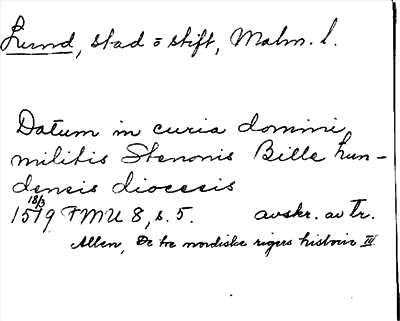 Lund, stad o stift, Malm. l.
Datum in curia domini
militis Stenonis Bille Lun-
densis diocesis
18/3
1519 FMU 8, s. 5. avskr. av Tr.
Allen, De tre nordiske rigers historie IV